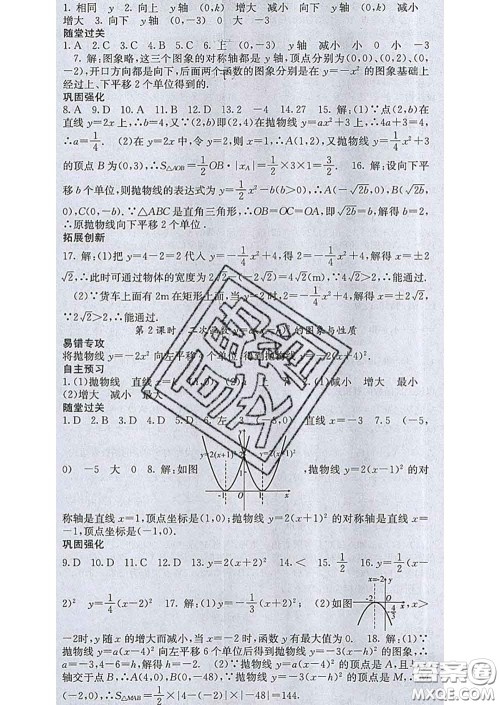 1. 相同 y 2. 向上 y轴 (0,-3) 增大 减小 向下 y轴 (0,-3) 减小
增大 3. 向下 y轴 (0,-3) 0 大 -3
随堂过关
1. A 2. C 3. C 4. B 5. C 6. 上 (0,-3) y轴 减小 小 0 小 -3
7. 解:图象略,这三个图象的对称轴都是y轴,顶点分别为(0,0),(0,2),(0,
-2),开口方向都是向下,后面两个函数的图象分别是在y=-x²的图象基础上
经过上、下平移2个单位得到的.
巩固强化
8. A 9. D 10. A 11. B 12. D 13. 2 -4 14. 27 15. 解:(1)∵点(2,b)在
直线y=2x上,∴b=4,又∵(2,b)即(2,4)在抛物线y=ax²+3上,∴4a+3=4,
∴a=1/4. (2)在y=2x中,令y=2,则x=1,∴A(1,2),又抛物线y=1/4x²+3
的顶点B为(0,3),∴S△AOB=1/2OB·|xA|=1/2×3×1=3/2. 16. 解:设向下平
移b个单位,则抛物线的表达式为y=1/2x²-b(b>0),∴A(-√2b,0),B(√2b,
0),C(0,-b). ∵△ABC是直角三角形,∴OB=OC=OA,即√2b=b,解得b=2,
∴原抛物线向下平移2个单位.
拓展创新
17. 解:(1)把y=4-2=2代入y=-1/4x²+4,得2=-1/4x²+4,解得x=±2
√2,∴此时可通过物体的宽度为2√2-(-2√2)=4√2(m),∵4√2>2,∴能通过.
(2)∵货车上面有2m在矩形上面,当y=2时,2=-1/4x²+4,解得x=±2√2,
2√2>2,∴能通过.
第2课时 二次函数 的图象与性质
易错专攻
将抛物线y=-2x²向左平移4个单位,得到抛物线y=-2(x+4)².
自主预习
1. (1)抛物线 直线x= (1,0) (2) 上 (1,0) 减小 增大 最小
(2)增大 减小 最大
随堂过关
1. D 2. A 3. B 4. D 5. D 6. 左 直线x=-3 7. 5 (-5,
0) -5 大 0 8. 解:如图 y=2(x+1)² y=2(x-1)² -1 0 1 x ,抛物线y=2(x-1)²的对
称轴是直线x=1,顶点坐标是(1,0);抛物线y=2(x+1)²的对称轴是直线x=
-1,顶点坐标是(-1,0).
巩固强化
9. D 10. D 11. C 12. D 13. y=2(x+2)² 14. < 15. 1/2 16. y=1/2(x-
2)² y=1/4(x-2)² 17. 解:(1)y=-1/3(x+2)²; (2)如图 x=-2 y -2 0 x -4/3 x>
-2时,y随x的增大而减小,当x=-2时,函数y有最大值为0. 18. 解:(1)∵
抛物线y=a(x-4)²向左平移6个单位后得到抛物线y=-3(x-h)²的图象,∴
a=-3,4-6=h,解得h=-2. (2)∵抛物线y=a(x-4)²的顶点是A,且与y
轴交于点B,∴A(4,0),B(0,-48),∵抛物线y=-3(x-h)²的顶点是M,∴M
(-2,0),∴S△MAB=1/2×|4-(-2)|×|-48|=144.